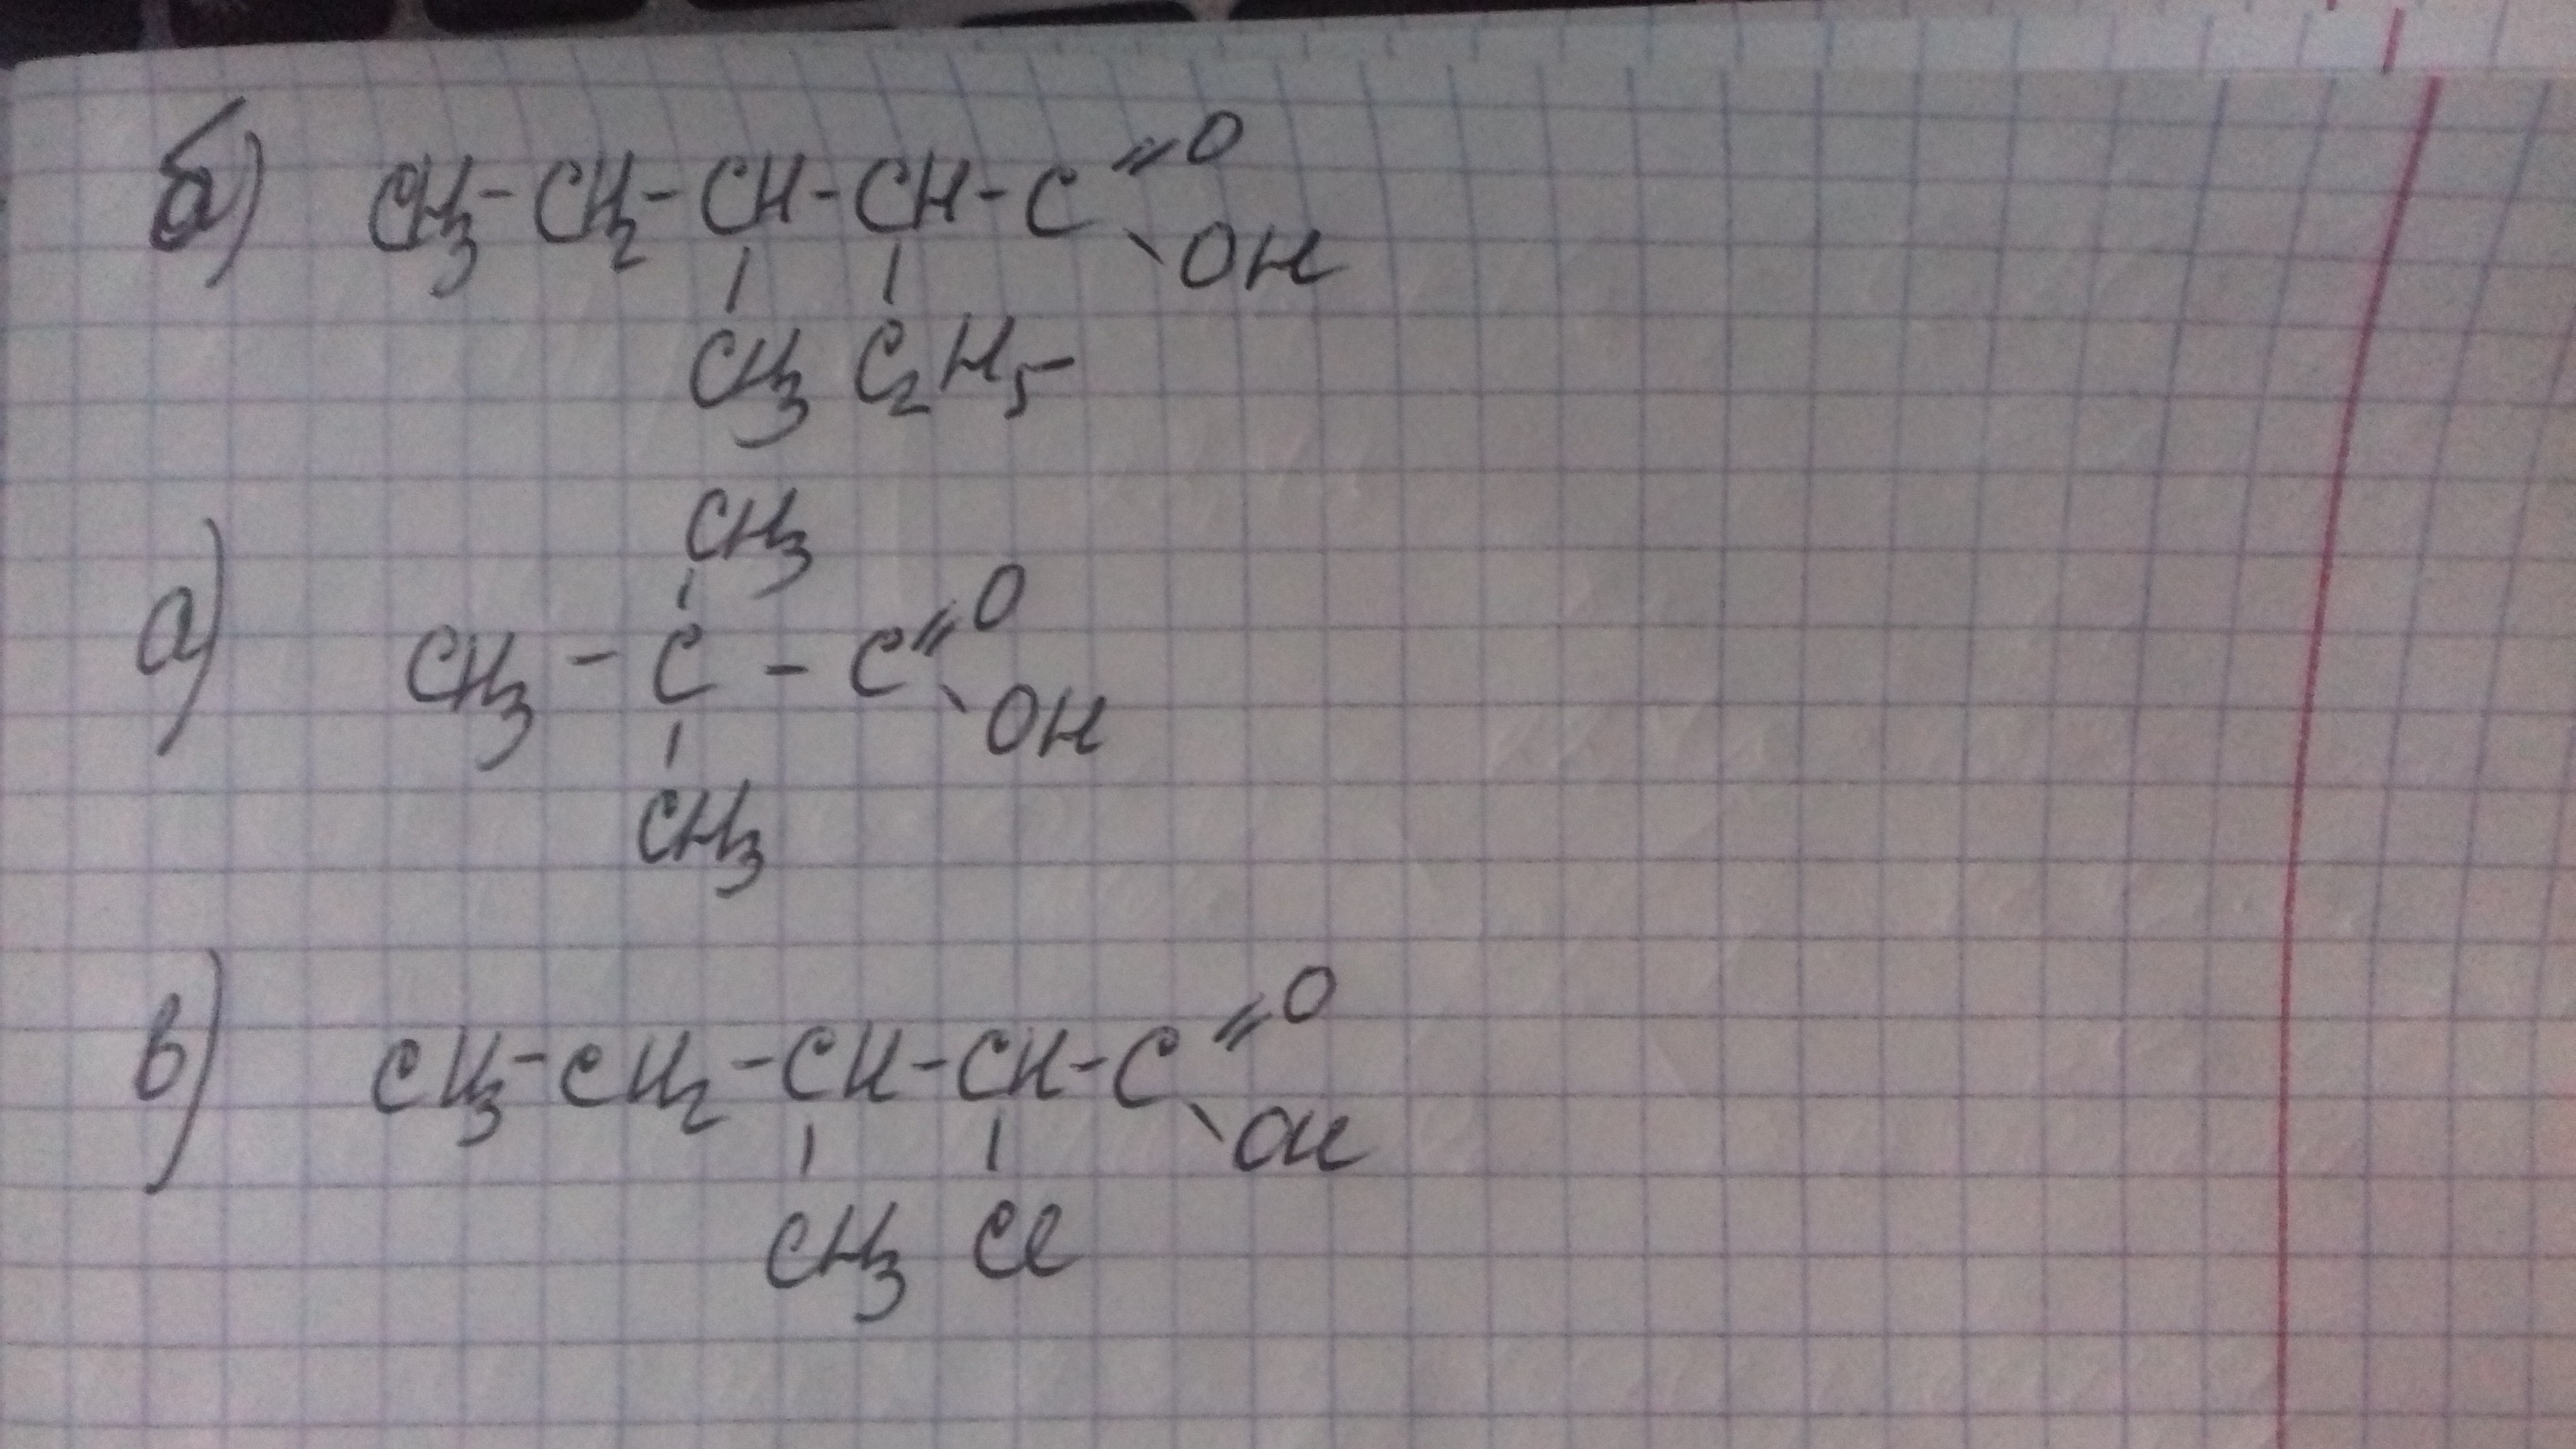 б) CH3-CH2-CH-CH-C=O
\OH
CH3 C2H5
CH3
а) CH3-C-C=O
\OH
CH3
в) CH3-CH2-CH-CH-C=O
\OH
CH3 Cl